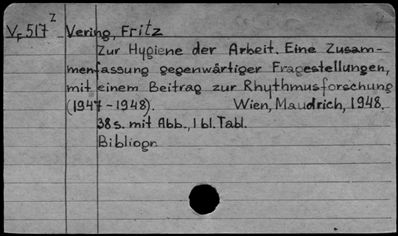 V_F 517^Z Vering, Fritz
Zur Hygiene der Arbeit. Eine Zusam-
menfassung gegenwärtiger Fragestellungen,
mit einem Beitrag zur Rhythmusforschung
(1947-1948). Wien, Maudrich, 1948.
38 s. mit Abb., 1 bl. Tabl.
Bibliogr.